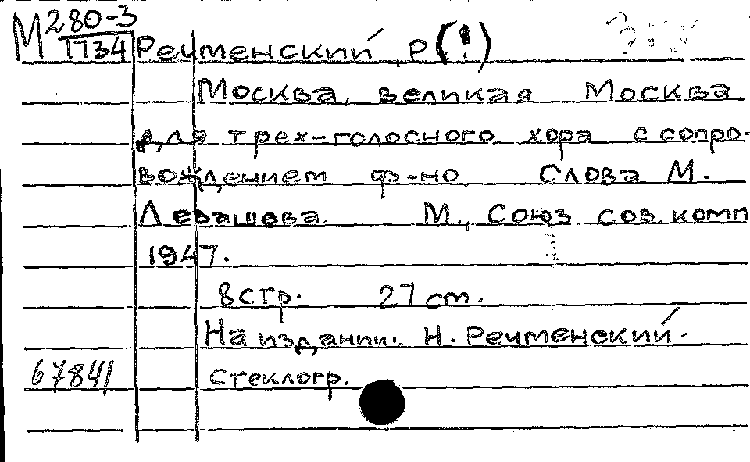 М 280-3
1734
Речменский, Р (!)
Москва, великая Москва
для трех-голосного хора с сопро-
вождением ф-но. Слова М.
Левашева. М., Союз сов. комп
1947.
8 стр. 27 см.
На издании: Н. Речменский.
67841 стеклогр.